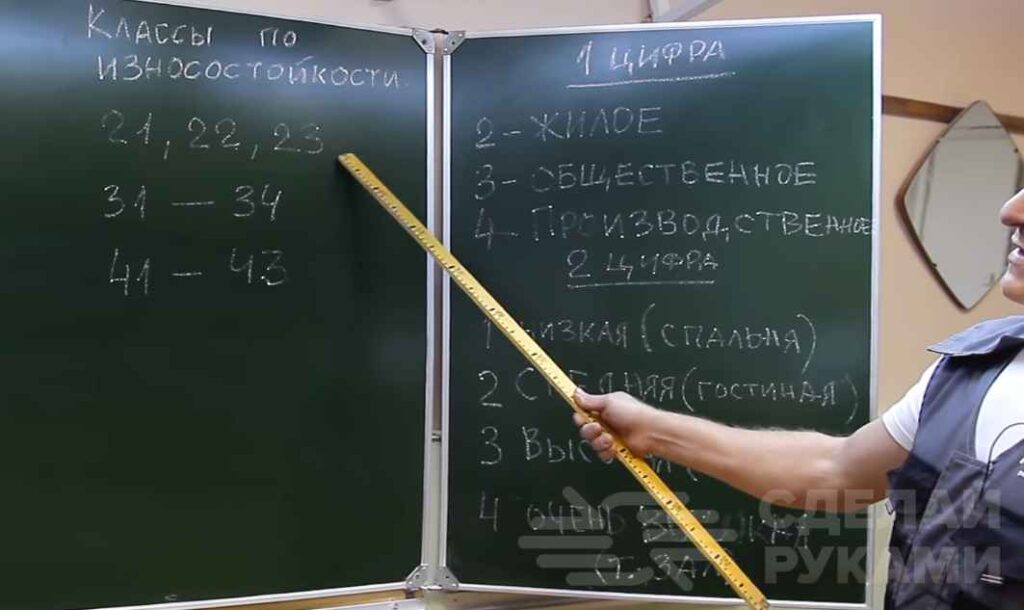 Классы по
износостойкости
21, 22, 23
31 — 34
41 — 43
1 ЦИФРА
2 - ЖИЛОЕ
3 - ОБЩЕСТВЕННОЕ
4 - ПРОИЗВОДСТВЕННОЕ
2 ЦИФРА
1 (СПАЛЬНЯ)
2 (ГОСТИНАЯ)
3
4 ОЧЕНЬ
СДЕЛАЙ
РУКАМИ